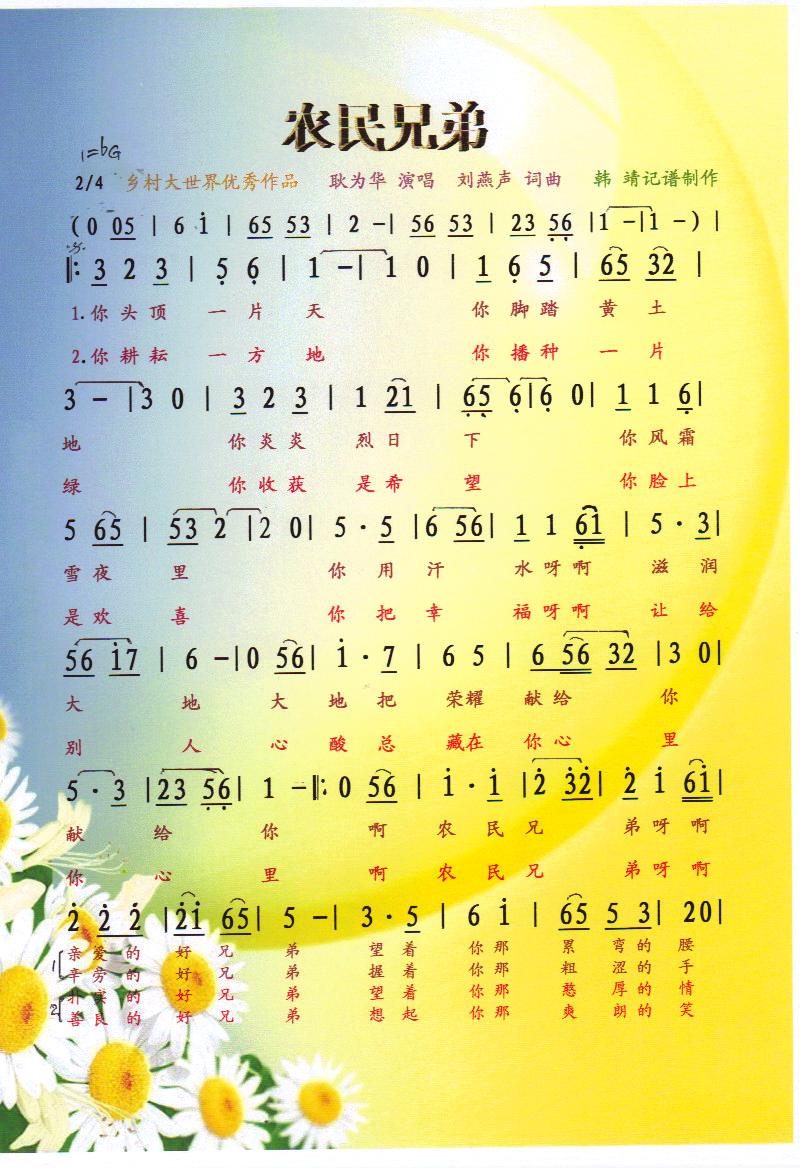 农民兄弟
1=bG
2/4 乡村大世界优秀作品 耿为华 演唱 刘燕声 词曲 韩 靖记谱制作
(0 05 | 6 i | 65 53 | 2 - | 56 53 | 23 56 | 1 - | 1 - ) |
‖: 3 2 3 | 5 6 | 1 - | 1 0 | 1 6 5 | 65 32 |
1.你头顶 一片 天 你脚踏 黄土
2.你耕耘 一方 地 你播种 一片
3 - | 3 0 | 3 2 3 | 1 21 | 65 6 | 6 0 | 1 1 6 |
地 你炎炎 烈日 下 你风霜
绿 你收获 是希 望 你脸上
5 65 | 53 2 | 2 0 | 5 · 5 | 6 56 | 1 1 61 | 5 · 3 |
雪夜 里 你用汗 水呀啊 滋润
是欢 喜 你把幸 福呀啊 让给
56 i7 | 6 - | 0 56 | i · 7 | 6 5 | 6 56 32 | 3 0 |
大 地 大 地把 荣耀 献给 你
别 人 心 酸总 藏在 你心 里
5 · 3 | 23 56 | 1 - :‖: 0 56 | i · i | 2̇ 3̇2̇ | 2̇ i 6i |
献 给 你 啊 农民兄 弟呀啊
你 心 里 啊 农民兄 弟呀啊
2̇ 2̇ 2̇ | 2̇i 65 | 5 - | 3 · 5 | 6 i | 65 5 3 | 2 0 |
1 亲爱的 好兄 弟 望着 你那 累 弯的 腰
辛劳的 好兄 弟 握着 你那 粗 涩的 手
2 朴实的 好兄 弟 望着 你那 憨 厚的 情
善良的 好兄 弟 想起 你那 爽 朗的 笑